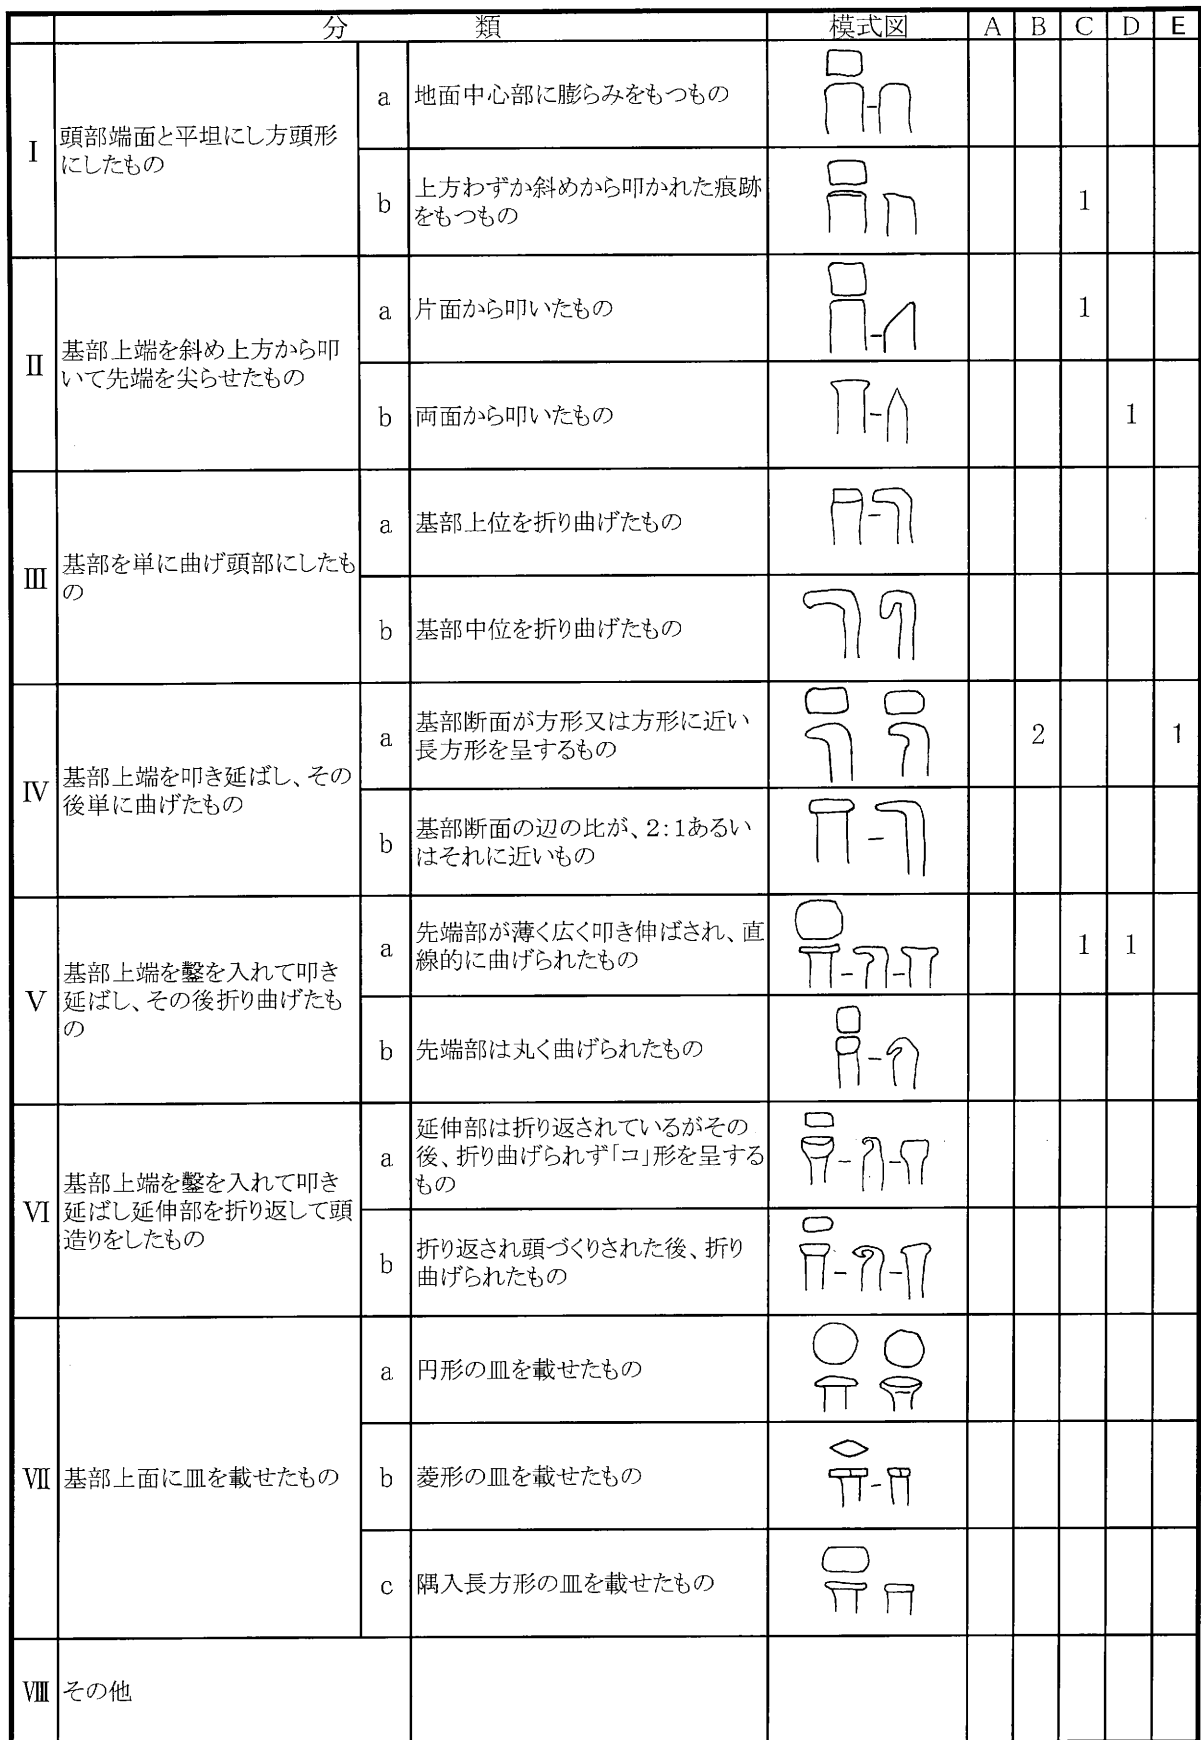 分類 模式図 A B C D E
I
頭部端面と平坦にし方頭形
にしたもの
a 地面中心部に膨らみをもつもの
b 上方わずか斜めから叩かれた痕跡
をもつもの
1
II
基部上端を斜め上方から叩
いて先端を尖らせたもの
a 片面から叩いたもの 1
b 両面から叩いたもの 1
III
基部を単に曲げ頭部にしたも
の
a 基部上位を折り曲げたもの
b 基部中位を折り曲げたもの
IV
基部上端を叩き延ばし、その
後単に曲げたもの
a 基部断面が方形又は方形に近い
長方形を呈するもの
2 1
b 基部断面の辺の比が、2:1あるい
はそれに近いもの
V
基部上端を鑿を入れて叩き
延ばし、その後折り曲げたも
の
a 先端部が薄く広く叩き伸ばされ、直
線的に曲げられたもの
1 1
b 先端部は丸く曲げられたもの
VI
基部上端を鑿を入れて叩き
延ばし延伸部を折り返して頭
造りをしたもの
a 延伸部は折り返されているがその
後、折り曲げられず「コ」形を呈する
もの
b 折り返され頭づくりされた後、折り
曲げられたもの
VII 基部上面に皿を載せたもの
a 円形の皿を載せたもの
b 菱形の皿を載せたもの
c 隅入長方形の皿を載せたもの
VIII その他